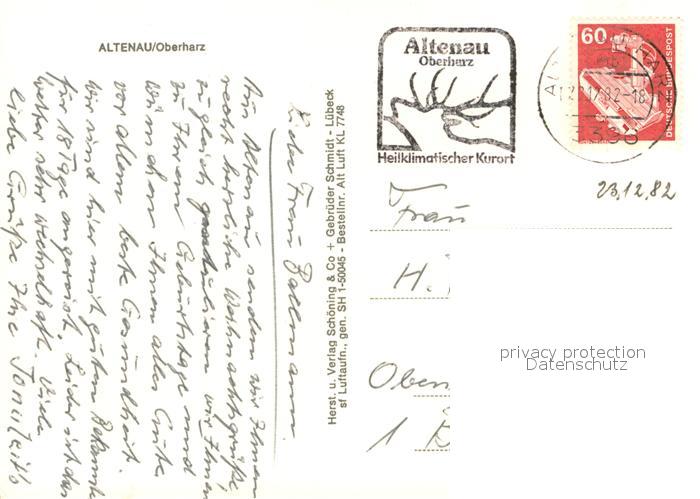 ALTENAU/Oberharz
Altenau
Oberharz
Heilklimatischer Kurort
60
DEUTSCHE BUNDESPOST
23.12.82
Liebe Frau
Aus Altenau senden wir Ihnen
recht herzliche Weihnachtsgrüße,
zugleich gratulieren wir Ihnen
zu Ihrem Geburtstage und
wünschen Ihnen alles Gute
vor allem beste Gesundheit.
Wir sind hier mit guten Bekannt
für 18 Tage angereist. Leider ist das
Wetter sehr wechselhaft. Viele
liebe Grüße Ihre
Herst. u. Verlag Schöning & Co + Gebrüder Schmidt - Lübeck
sf Luftaufn., gen. SH 1-50045 - Bestellnr. Alt Luft KL 7748
Frau
H.
Oben
1
privacy protection
Datenschutz